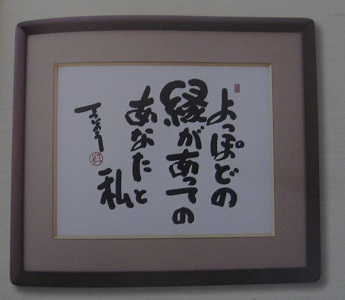 よっぽどの
縁があっての
あなたと
私